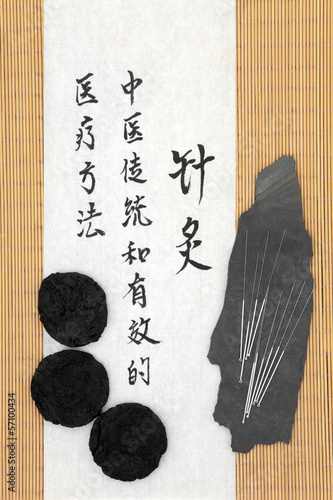 针灸
中医传统和有效的
医疗方法
Adobe Stock | #57100434